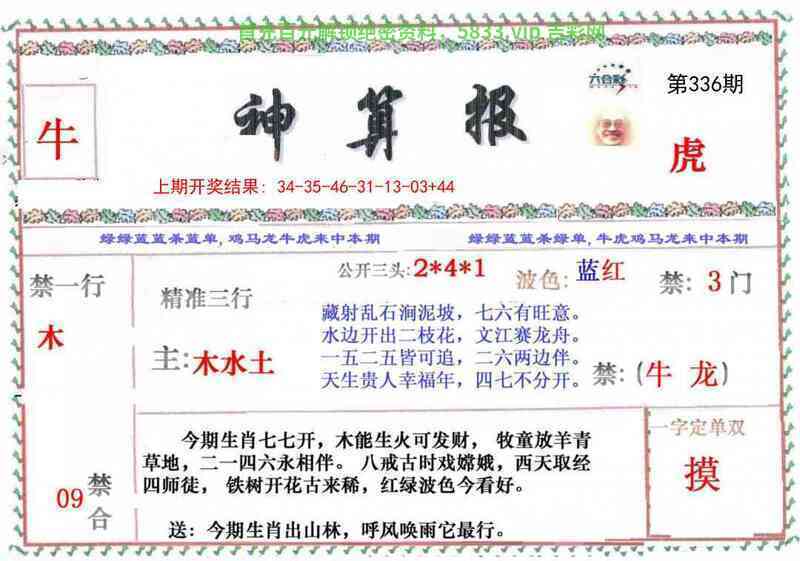 首先百开解锁绝密资料，5833.vip 吉彩网
六合彩
第336期
牛
神算报
虎
上期开奖结果: 34-35-46-31-13-03+44
绿绿蓝蓝杀蓝单, 鸡马龙牛虎来中本期
绿绿蓝蓝杀绿单, 牛虎鸡马龙来中本期
禁一行
木
09
禁合
精准三行
主: 木水土
公开三头: 2*4*1
波色: 蓝红
禁: 3门
藏射乱石涧泥坡，七六有旺意。
水边开出二枝花，文江赛龙舟。
一五二五皆可追，二六两边伴。
天生贵人幸福年，四七不分开。
禁: (牛 龙)
今期生肖七七开，木能生火可发财， 牧童放羊青
草地，二一四六永相伴。 八戒古时戏嫦娥，西天取经
四师徒， 铁树开花古来稀，红绿波色今看好。
送: 今期生肖出山林，呼风唤雨它最行。
一字定单双
摸